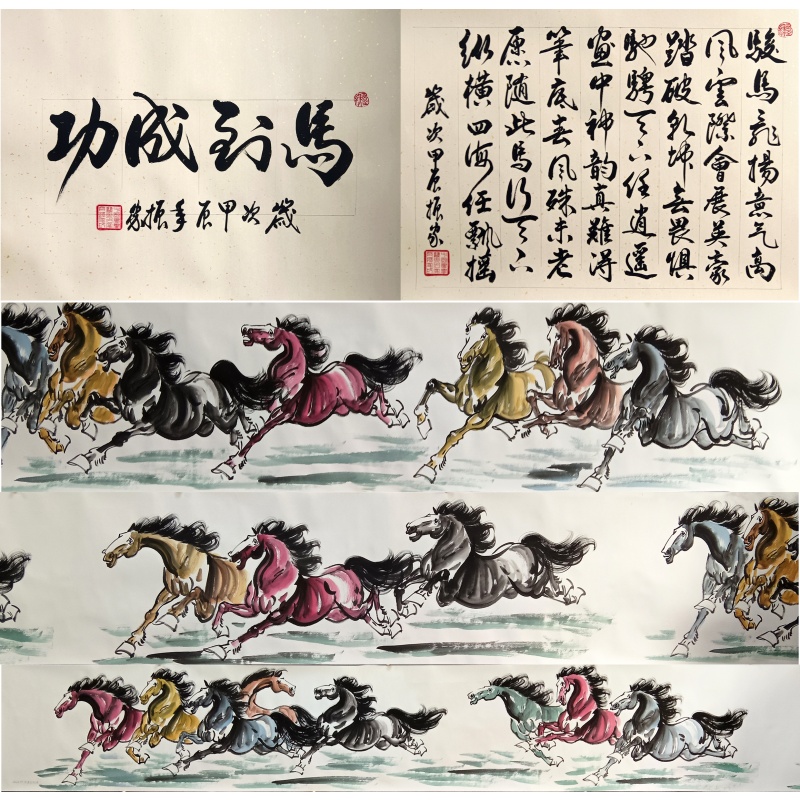 馬到成功
歲次甲辰年振家
駿馬飛揚意气高
風雲際會展英豪
踏破乾坤無畏懼
馳騁天下任逍遥
畫中神韻真難得
筆底春風殊未老
愿随此馬行天下
纵横四海任飘摇
歲次甲辰振家